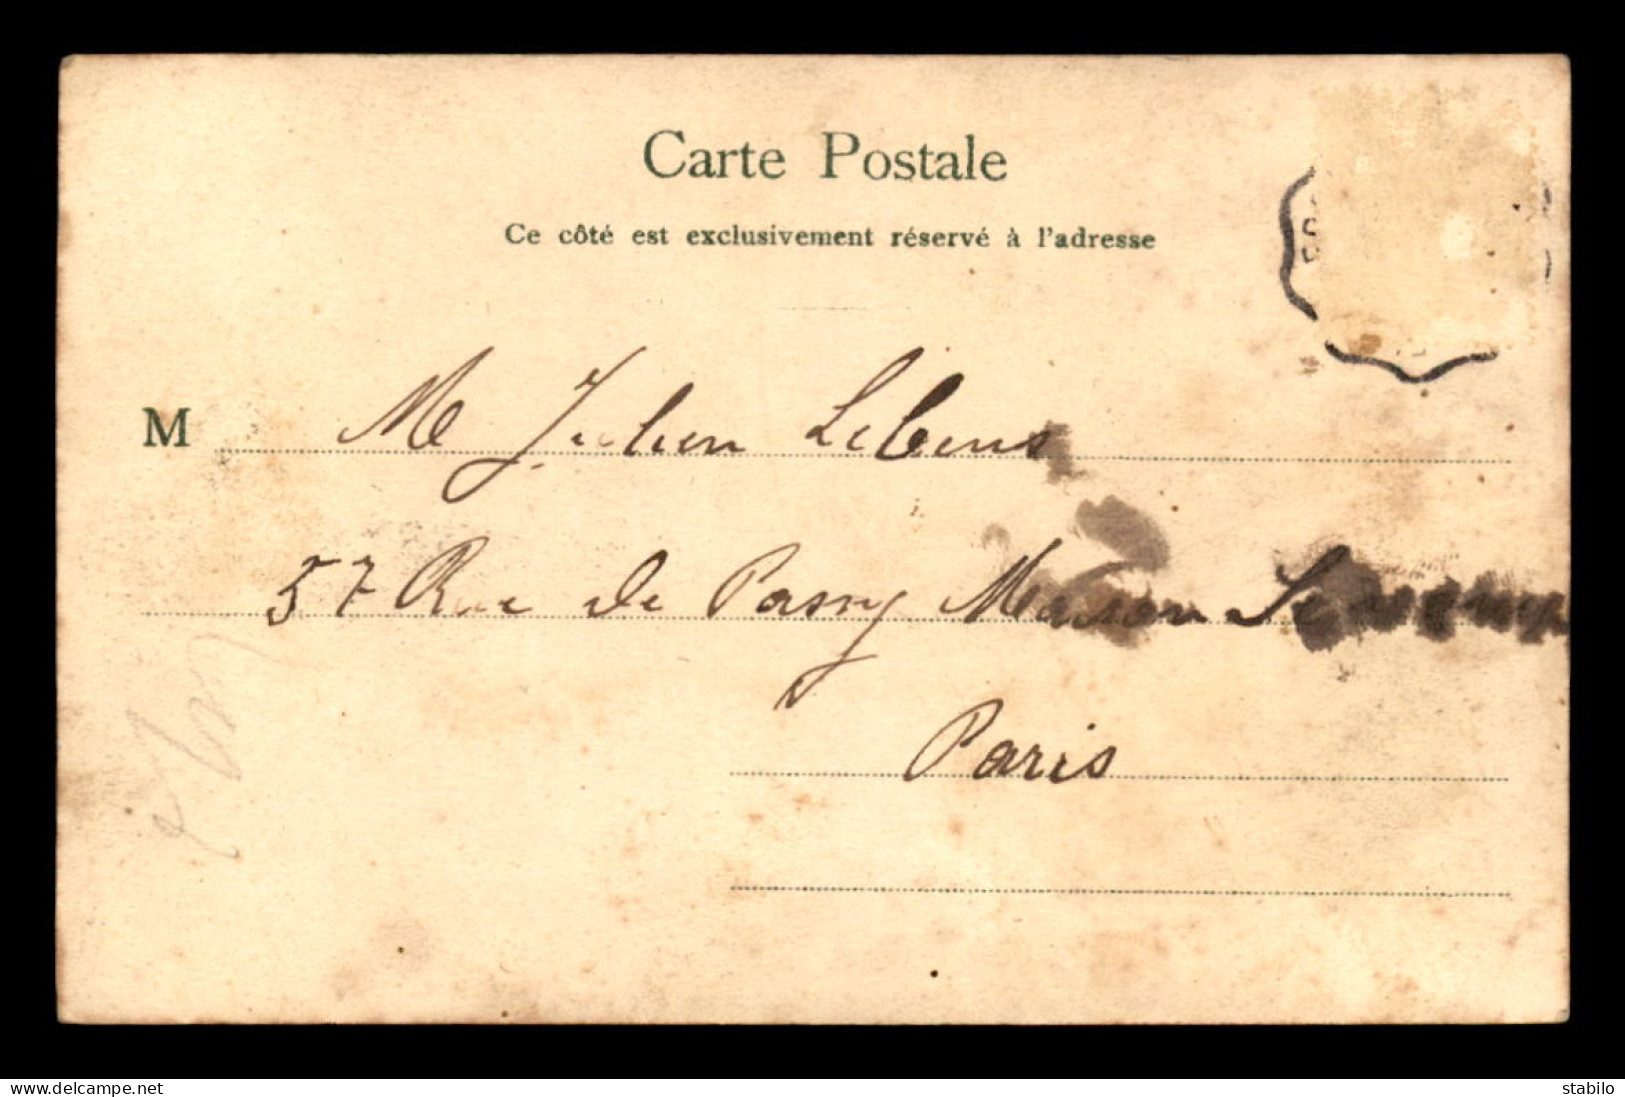 Carte Postale
Ce côté est exclusivement réservé à l'adresse
M M Julien Lebens
57 Rue de Passy Maison
Paris
delcampe.net
stabilo